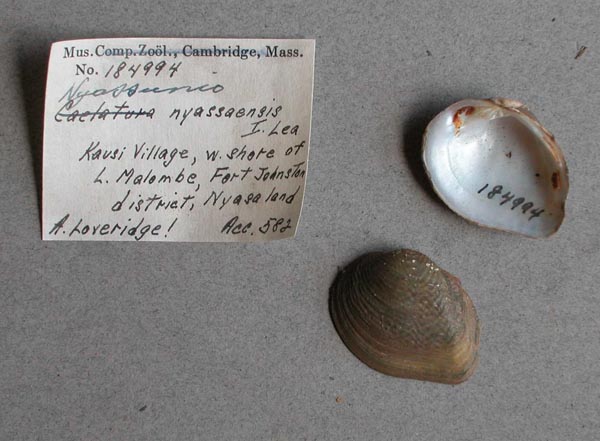 Mus. Comp. Zoöl., Cambridge, Mass.
No. 184994
Nyassunio
Caelatura nyassaensis
I. Lea
Kausi Village, w. shore of
L. Malombe, Fort Johnston
district, Nyasaland
A. Loveridge! Acc. 582
184994